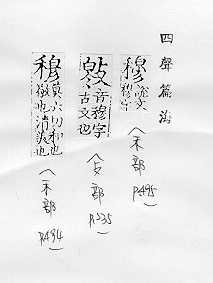 四聲篇海
穆
音義同穆字
（禾部
P.495）
𣀳
音穆字
古文也
（攴部
P.335）
穆
莫六切和也
敬也清美也
（禾部
P.494）